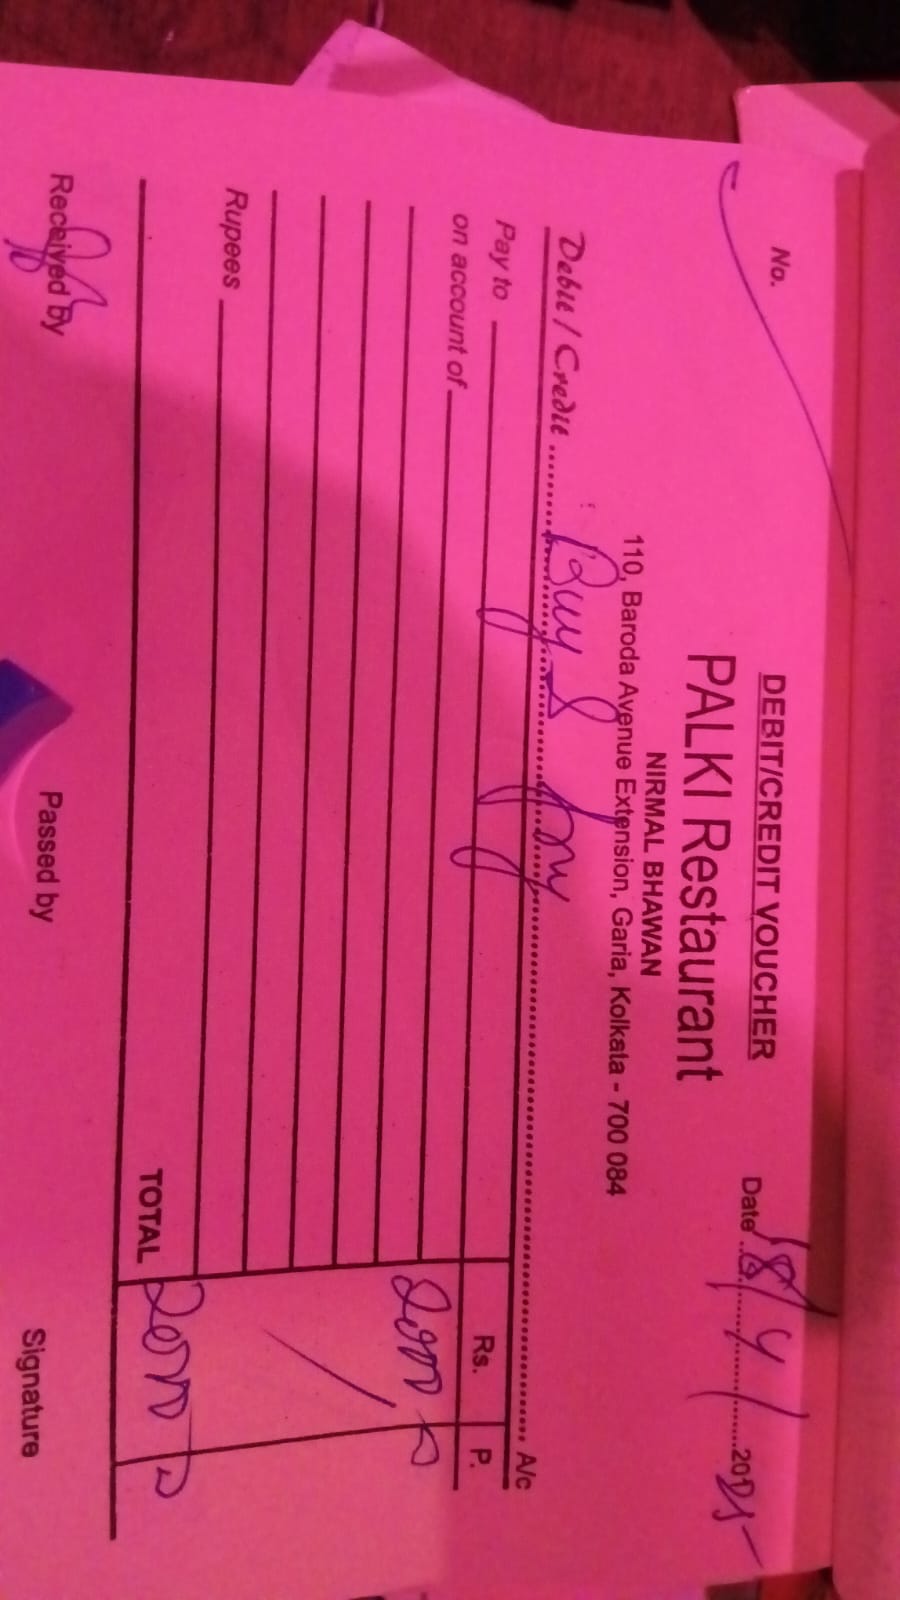 DEBIT/CREDIT VOUCHER
No.
Date 18/4/2025
PALKI Restaurant
NIRMAL BHAWAN
110, Baroda Avenue Extension, Garia, Kolkata - 700 084
Debit / Credit A/c
Pay to Rs. P.
on account of
Rupees
TOTAL
Received by Passed by Signature